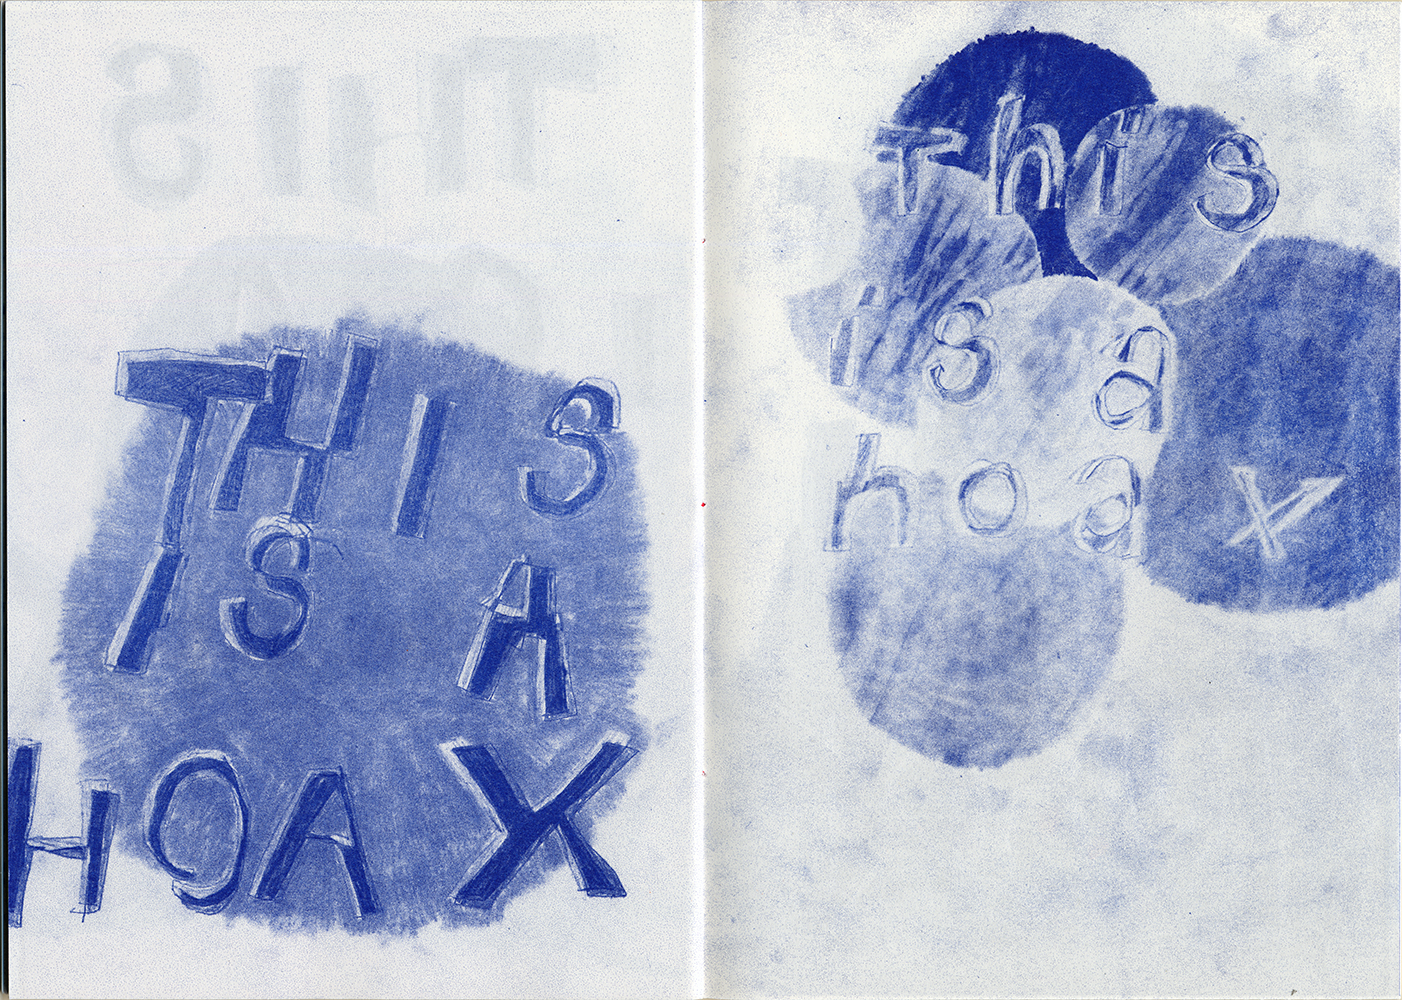 THIS
THIS
IS A
HOAX
This
is a
hoax